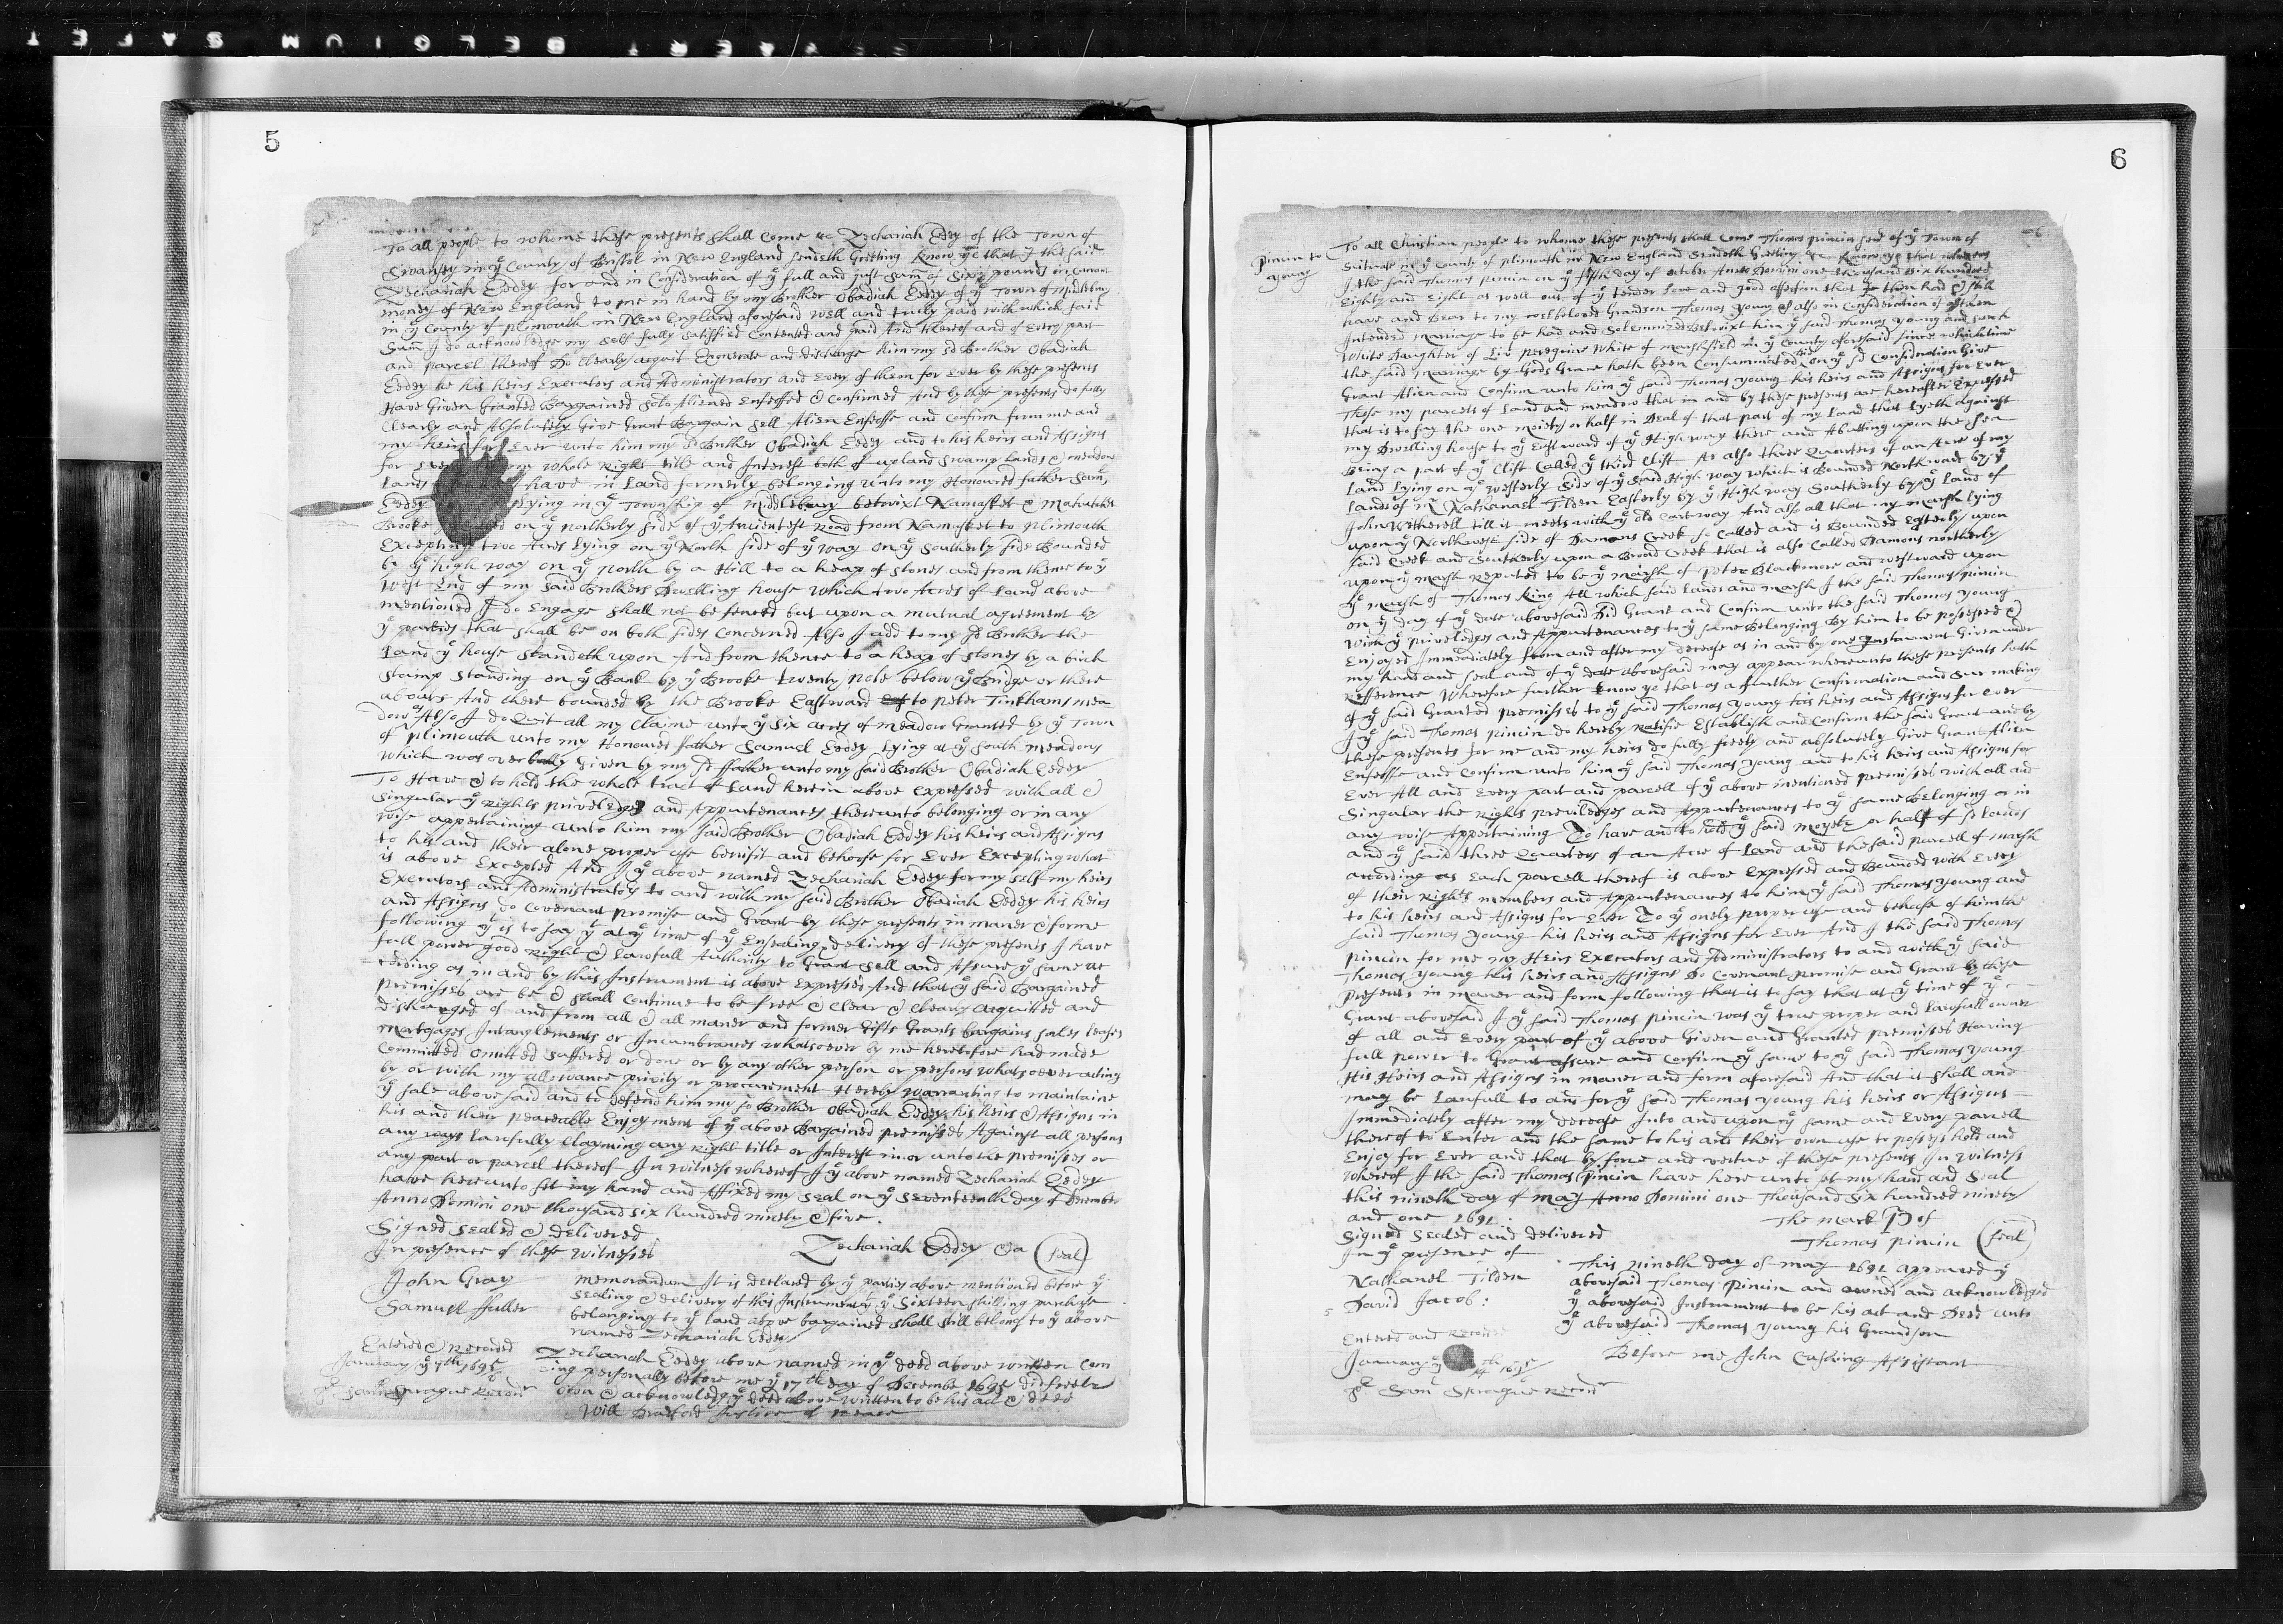 5
To all people to whome these presents shall come &c Zechariah Eddy of the Town of
Swansey in yᵉ County of Bristol in New England sendeth Greeting Know ye that I the said
Zechariah Eddey for and in Consideration of yᵉ full and just sum of Six pounds in Currant
money of New England to me in hand by my Brother Obadiah Eddey of yᵉ Town of Middlebury
in yᵉ County of plimouth in New England aforesaid well and truly paid with which said
Sum I do acknowledge my self fully satisfied Contented and paid And thereof and of Every part
and parcel thereof Do Clearly acquit Exonerate and discharge him my sd Brother Obadiah
Eddey he his heirs Executors and Administrators and Every of them for Ever by these presents
Have Given Granted Bargained Sold Aliened Enfeoffed & Confirmed And by these presents do fully
Clearly and Absolutely Give Grant Bargain Sell Alien Enfeoffe and Confirm from me and
my heirs for Ever unto him my sd Brother Obadiah Eddey and to his heirs and Assigns
for Ever my whole Right title and Interest both of upland Swamp lands & meadow
Lands have in Land formerly belonging unto my Honoured father Sam
Eddey Lying in yᵉ Township of Middlebury betwixt Namasket & Mahutchet
Brooke on yᵉ northerly side of yᵉ Ancientest Road from Namasket to Plimouth
Excepting two Acres Lying on yᵉ North side of yᵉ way on yᵉ Southerly side Bounded
by yᵉ high way on yᵉ North by a Hill to a heap of stones and from thence to yᵉ
West End of my said Brothers Dwelling house which two Acres of Land above
mentioned I do Engage shall not be fenced but upon a mutual agreement by
yᵉ parties that shall be on both sides Concerned Also I add to my sd Brother the
Land yᵉ house standeth upon And from thence to a heap of stones by a birch
stump standing on yᵉ Bank by yᵉ Brooke twenty pole below yᵉ Bridge or there
abouts And there bounded by the Brooke Eastward to Peter Tinkhams mea
dow Also I do Quit all my Claime unto yᵉ Six acres of meadow Granted by yᵉ Town
of plimouth unto my Honoured father Samuel Eddey lying at yᵉ South meadows
which was Given by my sd father unto my said Brother Obadiah Eddey
To Have & to hold the whole tract of Land herein above Expressed with all &
Singular yᵉ Rights priveledges and Appurtenances thereunto belonging or in any
wise appertaining unto him my said Brother Obadiah Eddey his heirs and Assigns
to his and their alone proper use benifit and behoofe for Ever Excepting what
is above Excepted And I yᵉ above named Zechariah Eddey for my self my heirs
Executors and Administrators to and with my said Brother Obadiah Eddey his heirs
and Assigns do Covenant promise and Grant by these presents in maner & forme
following yᵗ is to say yᵗ at yᵉ time of yᵉ Ensealing & delivery of these presents I have
full power good Right & Lawfull Authority to Grant Sell and Assure yᵉ same ac
=cording as in and by this Instrument is above Expressed And that yᵉ said Bargained
premisses are be & shall Continue to be free & Clear & Clearly acquitted and
discharged of and from all & all maner and former Gifts Grants bargains sales leases
mortgages Intanglements or Incumbrances whatsoever by me heretofore had made
Committed omitted suffered or done or by any other person or persons whatsoever acting
by or with my allowance privity or procurement Hereby warranting to maintaine
yᵉ sale abovesaid and to defend him my sd Brother Obadiah Eddey his heirs & Assigns in
his and their peaceable Enjoyment of yᵉ above Bargained premisses Against all persons
any ways Lawfully Clayming any Right title or Interest in or unto the premisses or
any part or parcel thereof In witness whereof I yᵉ above named Zechariah Eddey
have hereunto set my hand and Affixed my Seal on yᵉ Seventeenth day of December
Anno Domini one thousand six hundred ninety & five.
Signed Sealed & delivered
In presence of these witnesses
Zechariah Eddey & a (seal)
John Gray
Samuel ffuller
memorandum It is declared by yᵉ parties above mentioned before yᵉ
sealing & delivery of this Instrument yᵗ yᵉ Sixteen shilling purchase
belonging to yᵉ land above bargained shall still belong to yᵉ above
named Zechariah Eddey
Entered & Recorded
January yᵉ 7th 1695
pʳ Sam Sprague Recordʳ
Zechariah Eddey above named in yᵉ deed above written Com
ing personally before me yᵉ 17th day of December 1695 did freely
own & acknowledg yᵉ deed above written to be his act & deed
Will Bradford Justice of peace
6
Pincin to
Young
To all Christian people to whome these presents shall Come Thomas pincin senʳ of yᵉ Town of
Scituate in yᵉ County of plimouth in New England Sendeth Greeting &c Know ye that whereas
I the said Thomas pincin on yᵉ fifth day of October Anno Domini one thousand Six hundred
Eighty and Eight as well out of yᵉ tender love and good affection that I then had & still
have and Bear to my welbeloved Grandson Thomas Young As also in Consideration of a then
Intended marriage to be had and Solemnized Betwixt him yᵉ said Thomas Young and Sarah
White Daughter of Peregrine White of Marshfield in yᵉ County aforesaid Since which time
the said marriage by Gods Grace hath been Consummated on yᵉ sd Consideration Give
Grant Alien and Confirm unto him yᵉ said Thomas Young his heirs and Assigns for Ever
Those my parcels of Land and meadow that in and by these presents are hereafter Expressed
that is to say the one moiety or half in Deal of that part of my Land that lyeth against
my Dwelling house to yᵉ Eastward of yᵉ High way there and Abutting upon the sea
Being a part of yᵉ Clift Called yᵉ third Clift As also three Quarters of an Acre of my
Land lying on yᵉ Westerly Side of yᵉ said High way which is Bounded Northward by yᵉ
Lands of mʳ Nathanael Tilden Easterly by yᵉ High way Southerly by yᵉ Land of
John Witherell till it meets with yᵉ old Cart way And also all that my marsh lying
upon yᵉ Northwest side of Damons Creek so Called and is Bounded Easterly upon
said Creek and Southerly upon a Broad Creek that is also Called Damons northerly
upon yᵉ marsh Reputed to be yᵉ marsh of Peter Blackmore and westward upon
yᵉ marsh of Thomas King All which said Lands and marsh I the said Thomas Pincin
on yᵉ day of yᵉ date abovesaid Did Grant and Confirm unto the said Thomas Young
with yᵉ priveledges and Appurtenances to yᵉ same Belonging By him to be possessed &
Enjoyed Immediately from and after my decease as in and by one Instrument Given under
my hand and seal and of yᵉ date abovesaid may appear whereunto these presents hath
Refference Wherefore further know ye that as a further Confirmation and Sure making
of yᵉ said Granted premisses to yᵉ said Thomas Young his heirs and Assigns for Ever
I yᵉ said Thomas Pincin do hereby Ratifie Establish and Confirm the said Grant and by
these presents for me and my heirs do fully freely and absolutely Give Grant Alien
Enfeoffe and Confirm unto him yᵉ said Thomas Young and to his heirs and Assigns for
Ever All and Every part and parcell of yᵉ above mentioned premisses with all and
Singular the Rights previledges and Appurtenances to yᵉ same Belonging or in
any wise Appertaining To have and to hold yᵉ said moyety or half of sd Lands
and yᵉ said three Quarters of an Acre of Land and the said parcell of marsh
according as Each parcell thereof is above Expressed and Bounded with Every
of their Rights members and Appurtenances to him yᵉ said Thomas Young and
to his heirs and Assigns for Ever To yᵉ onely proper use and behoofe of him the
said Thomas Young his heirs and Assigns for Ever And I the said Thomas
Pincin for me my Heirs Executors and Administrators to and with yᵉ said
Thomas Young his heirs and Assigns Do Covenant promise and Grant by these
presents in maner and form following that is to say that at yᵉ time of yᵉ
Grant abovesaid I yᵉ said Thomas Pincin was yᵉ true proper and lawfull owner
of all and Every part of yᵉ above Given and Granted premisses Having
full power to Grant assure and Confirm yᵉ same to yᵉ said Thomas Young
His Heirs and Assigns in maner and form aforesaid And that it shall and
may be Lawfull to and for yᵉ said Thomas Young his heirs or Assigns
Immediately after my decease Into and upon yᵉ same and Every parcell
thereof to Enter and the same to his and their own use to possess hold and
Enjoy for Ever and that by force and vertue of these presents In witness
whereof I the said Thomas Pincin have here unto set my hand and Seal
this nineth day of may Anno Domini one Thousand Six hundred ninety
and one 1691.
Signed Sealed and delivered
In yᵉ presence of
The mark P of
Thomas Pincin (seal)
Nathanel Tilden
David Jacob:
This nineth day of may 1691 appeared yᵉ
abovesaid Thomas Pincin and owned and acknowledged
yᵉ abovesaid Instrument to be his act and Deed unto
yᵉ abovesaid Thomas Young his Grandson
Before me John Cushing Assistant
Entered and Recorded
January yᵉ 1695
pʳ Sam Sprague Recordʳ